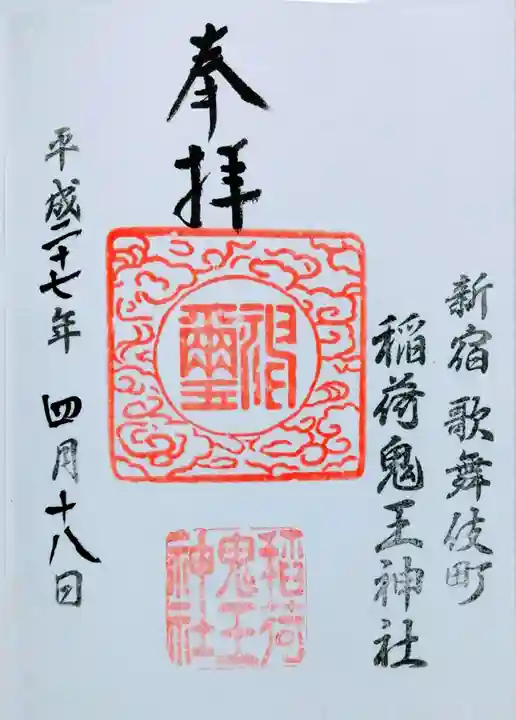 新宿 歌舞伎町
稲荷鬼王神社
奉拝
稲荷
鬼王
神社
平成二十七年 四月十八日